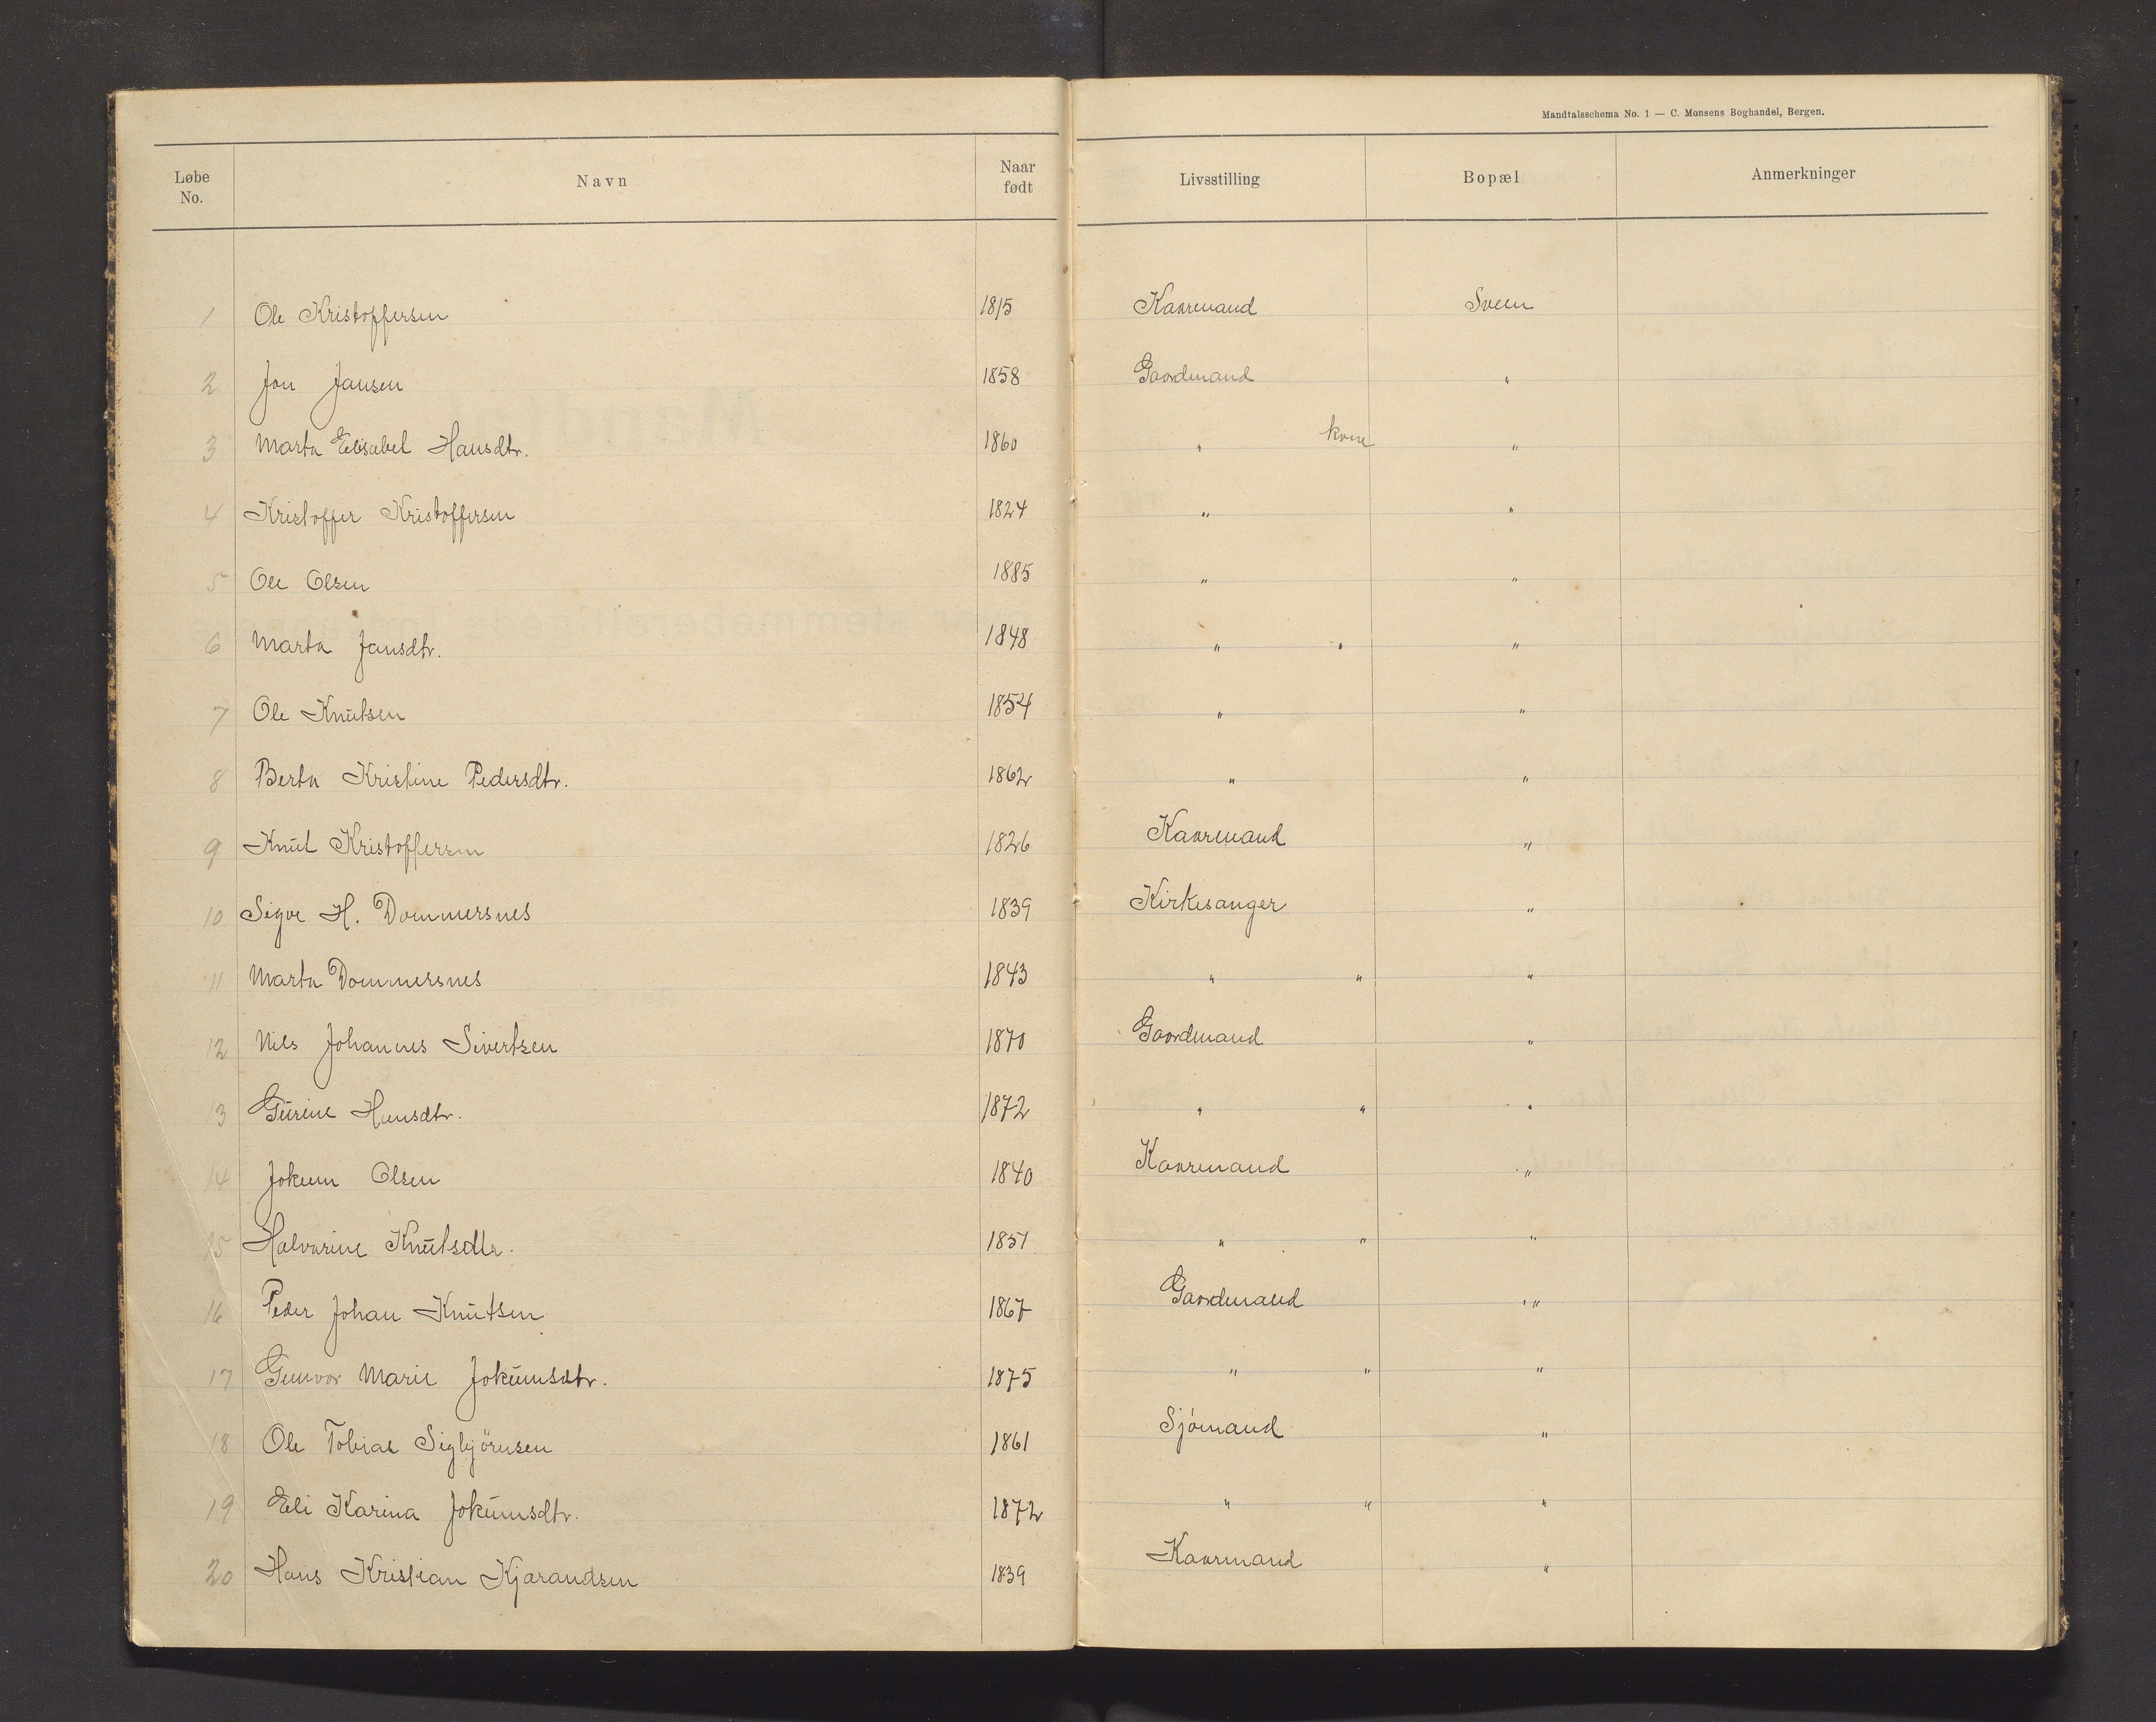 Mandtalsschema No. 1 — C. Monsens Boghandel, Bergen.
Løbe No. Navn Naar født Livsstilling Bopæl Anmerkninger
1 Ole Kristoffersen 1815 Kaarmand Sveen
2 Jon Jansen 1858 Gaardmand "
3 Marta Elisabet Hansdtr. 1860 " kone "
4 Kristoffer Kristoffersen 1824 " "
5 Ole Olsen 1885 " "
6 Marta Jansdtr. 1848 " " "
7 Ole Knutsen 1854 " "
8 Berta Kristine Pedersdtr. 1862 " "
9 Knut Kristoffersen 1826 Kaarmand "
10 Sigve H. Dommersnes 1839 Kirkesanger "
11 Marta Dommersnes 1843 " " "
12 Nils Johannes Sivertsen 1870 Gaardmand "
13 Gurine Hansdtr. 1872 " " "
14 Jokum Olsen 1840 Kaarmand "
15 Halvarine Knutsdtr. 1851 " " "
16 Peder Johan Knutsen 1867 Gaardmand "
17 Gunvor Marie Jokumsdtr. 1875 " " "
18 Ole Tobias Sigbjörnsen 1861 Sjömand "
19 Eli Karina Jokumsdtr. 1872 " " "
20 Hans Kristian Kjarandsen 1839 Kaarmand "